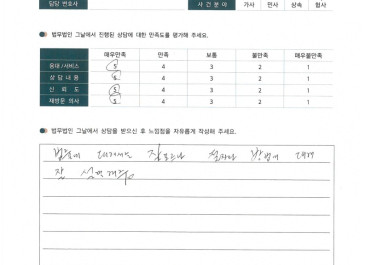 담당 변호사 사 건 분 야 가사 민사 상속 형사
법무법인 그날에서 진행된 상담에 대한 만족도를 평가해 주세요.
매우만족 만족 보통 불만족 매우불만족
응대/서비스 5 4 3 2 1
상 담 내 용 5 4 3 2 1
신 뢰 도 5 4 3 2 1
재방문 의사 5 4 3 2 1
법무법인 그날에서 상담을 받으신 후 느낌점을 자유롭게 작성해 주세요.
법률에 대해서는 잘 모르나 절차나 방법에 대해
잘 설명해주심